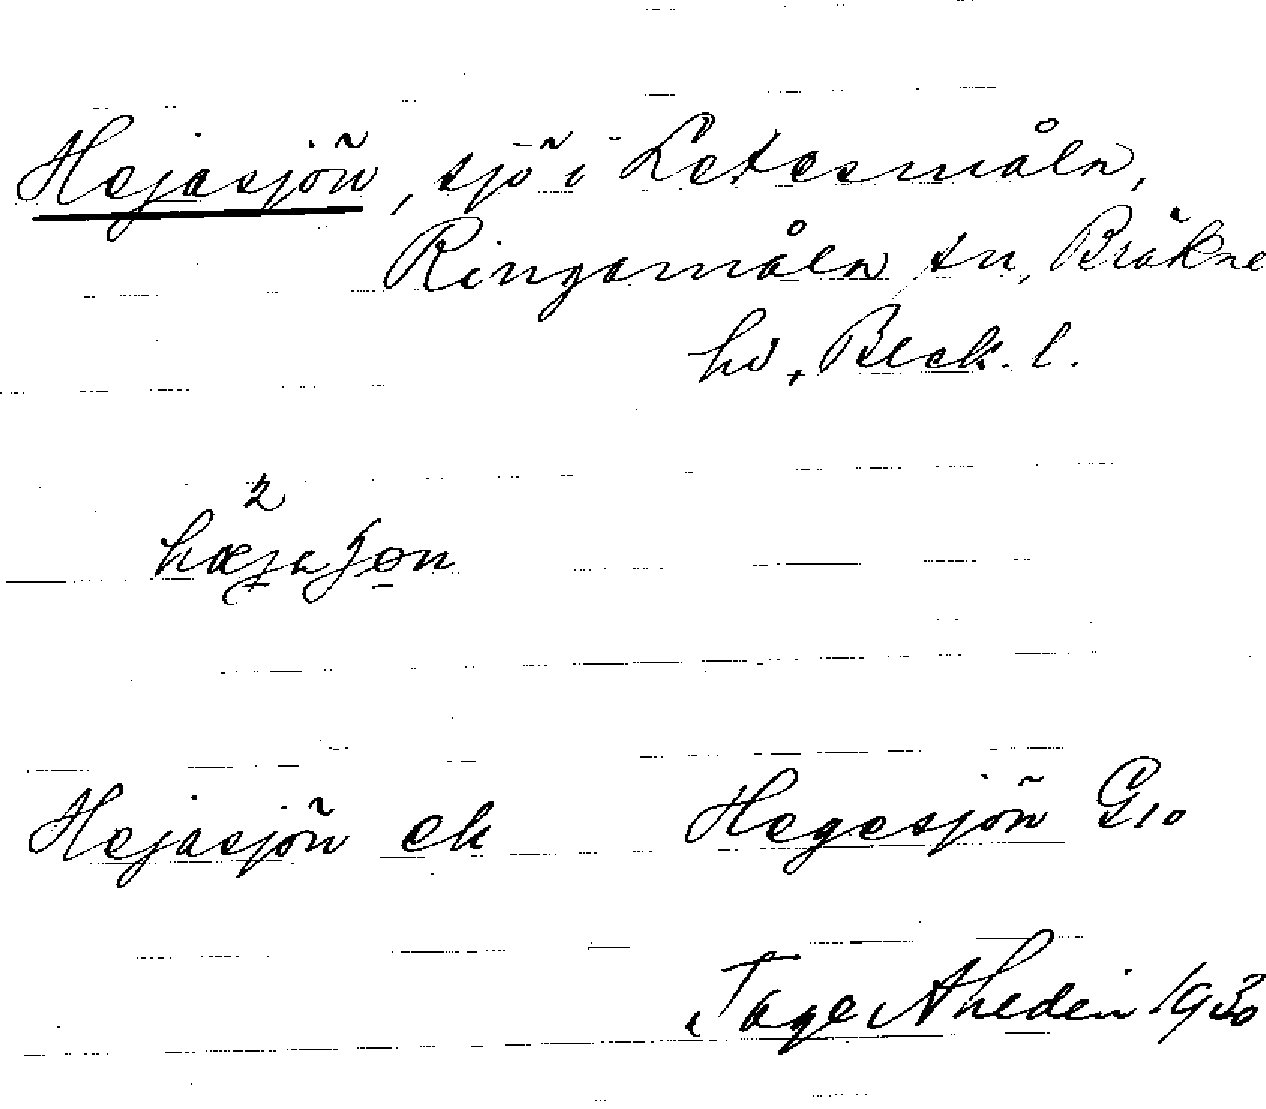 Hejasjön, sjö i Letesmåla,
Ringamåla sn, Bräkne
hd, Blek. l.
2
hæjaʃøn
Hejasjön ek Hegesjön G10
Tage Ahedin 1930